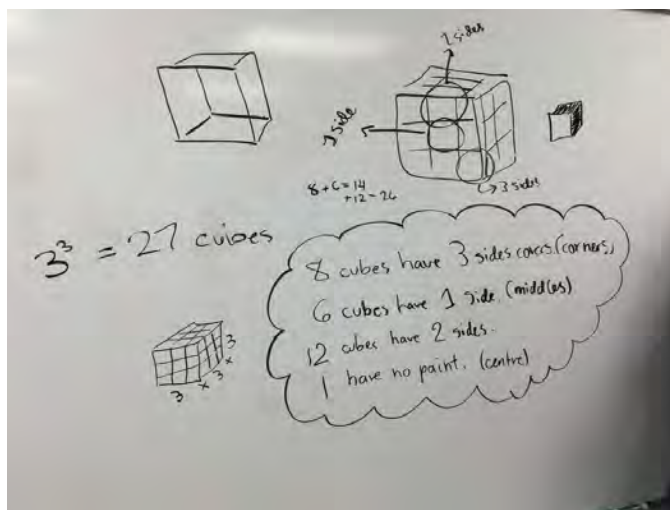 2 sides
1 side
8+6=14
+12=26
3 sides
3³ = 27 cubes
8 cubes have 3 sides covers. (corners)
6 cubes have 1 side. (middles)
12 cubes have 2 sides.
1 have no paint. (centre)
3
x
3
x
3